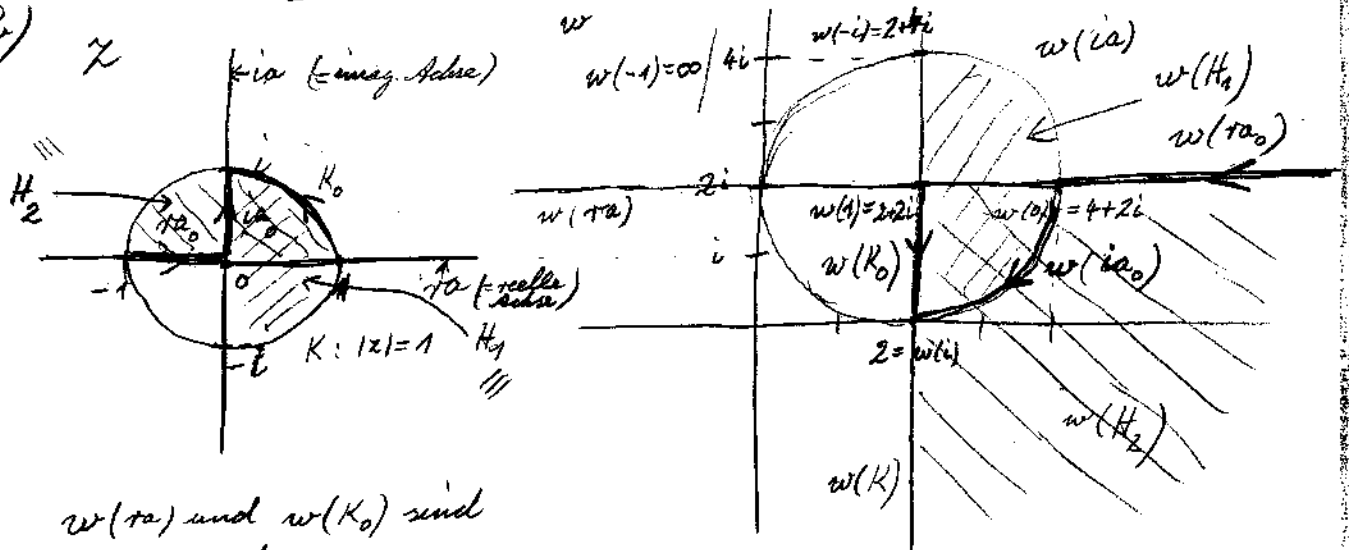 z
ia (= imag. Achse)
i
K₀
H₂
ra₀
ia₀
-1
0
1
ra (= reelle Achse)
-i
K: |z| = 1
H₁
w
w(-i) = 2+4i
w(-1) = ∞
4i
w(ia)
w(H₁)
w(ra₀)
2i
w(ra)
w(1) = 2+2i
w(0) = 4+2i
i
w(K₀)
w(ia₀)
2 = w(i)
w(H₂)
w(K)
w(ra) und w(K₀) sind